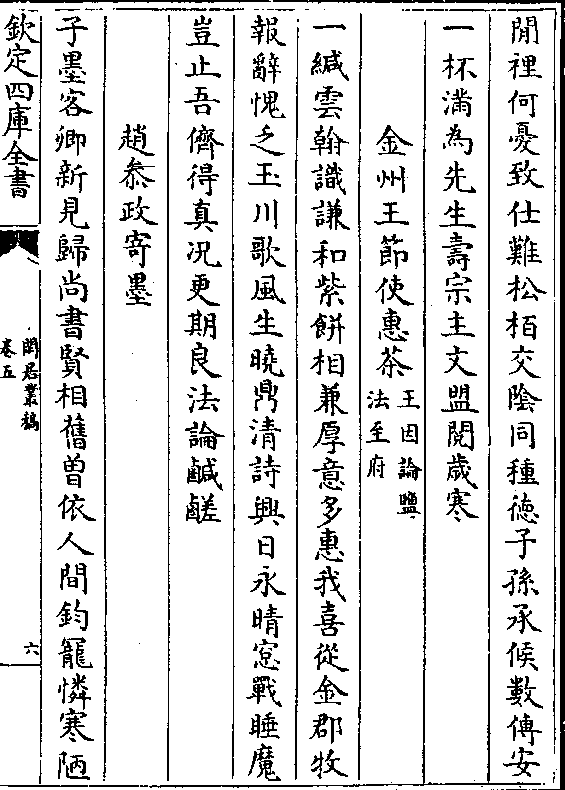 閒裡何憂致仕難松栢交隂同種徳子孫承候數傳安
一杯滿為先生壽宗主文盟閱歳寒
金州王節使惠茶王因論鹽
法至府
一緘雲翰識謙和紫餅相兼厚意多惠我喜從金郡牧
報辭愧乏玉川歌風生曉鼎清詩興日永晴窓戰睡魔
豈止吾儕得真况更期良法論鹹鹺
趙叅政寄墨
子墨客卿新見歸尚書賢相舊曽依人間鈞寵憐寒陋
欽定四庫全書
閒居叢稿
卷五
六